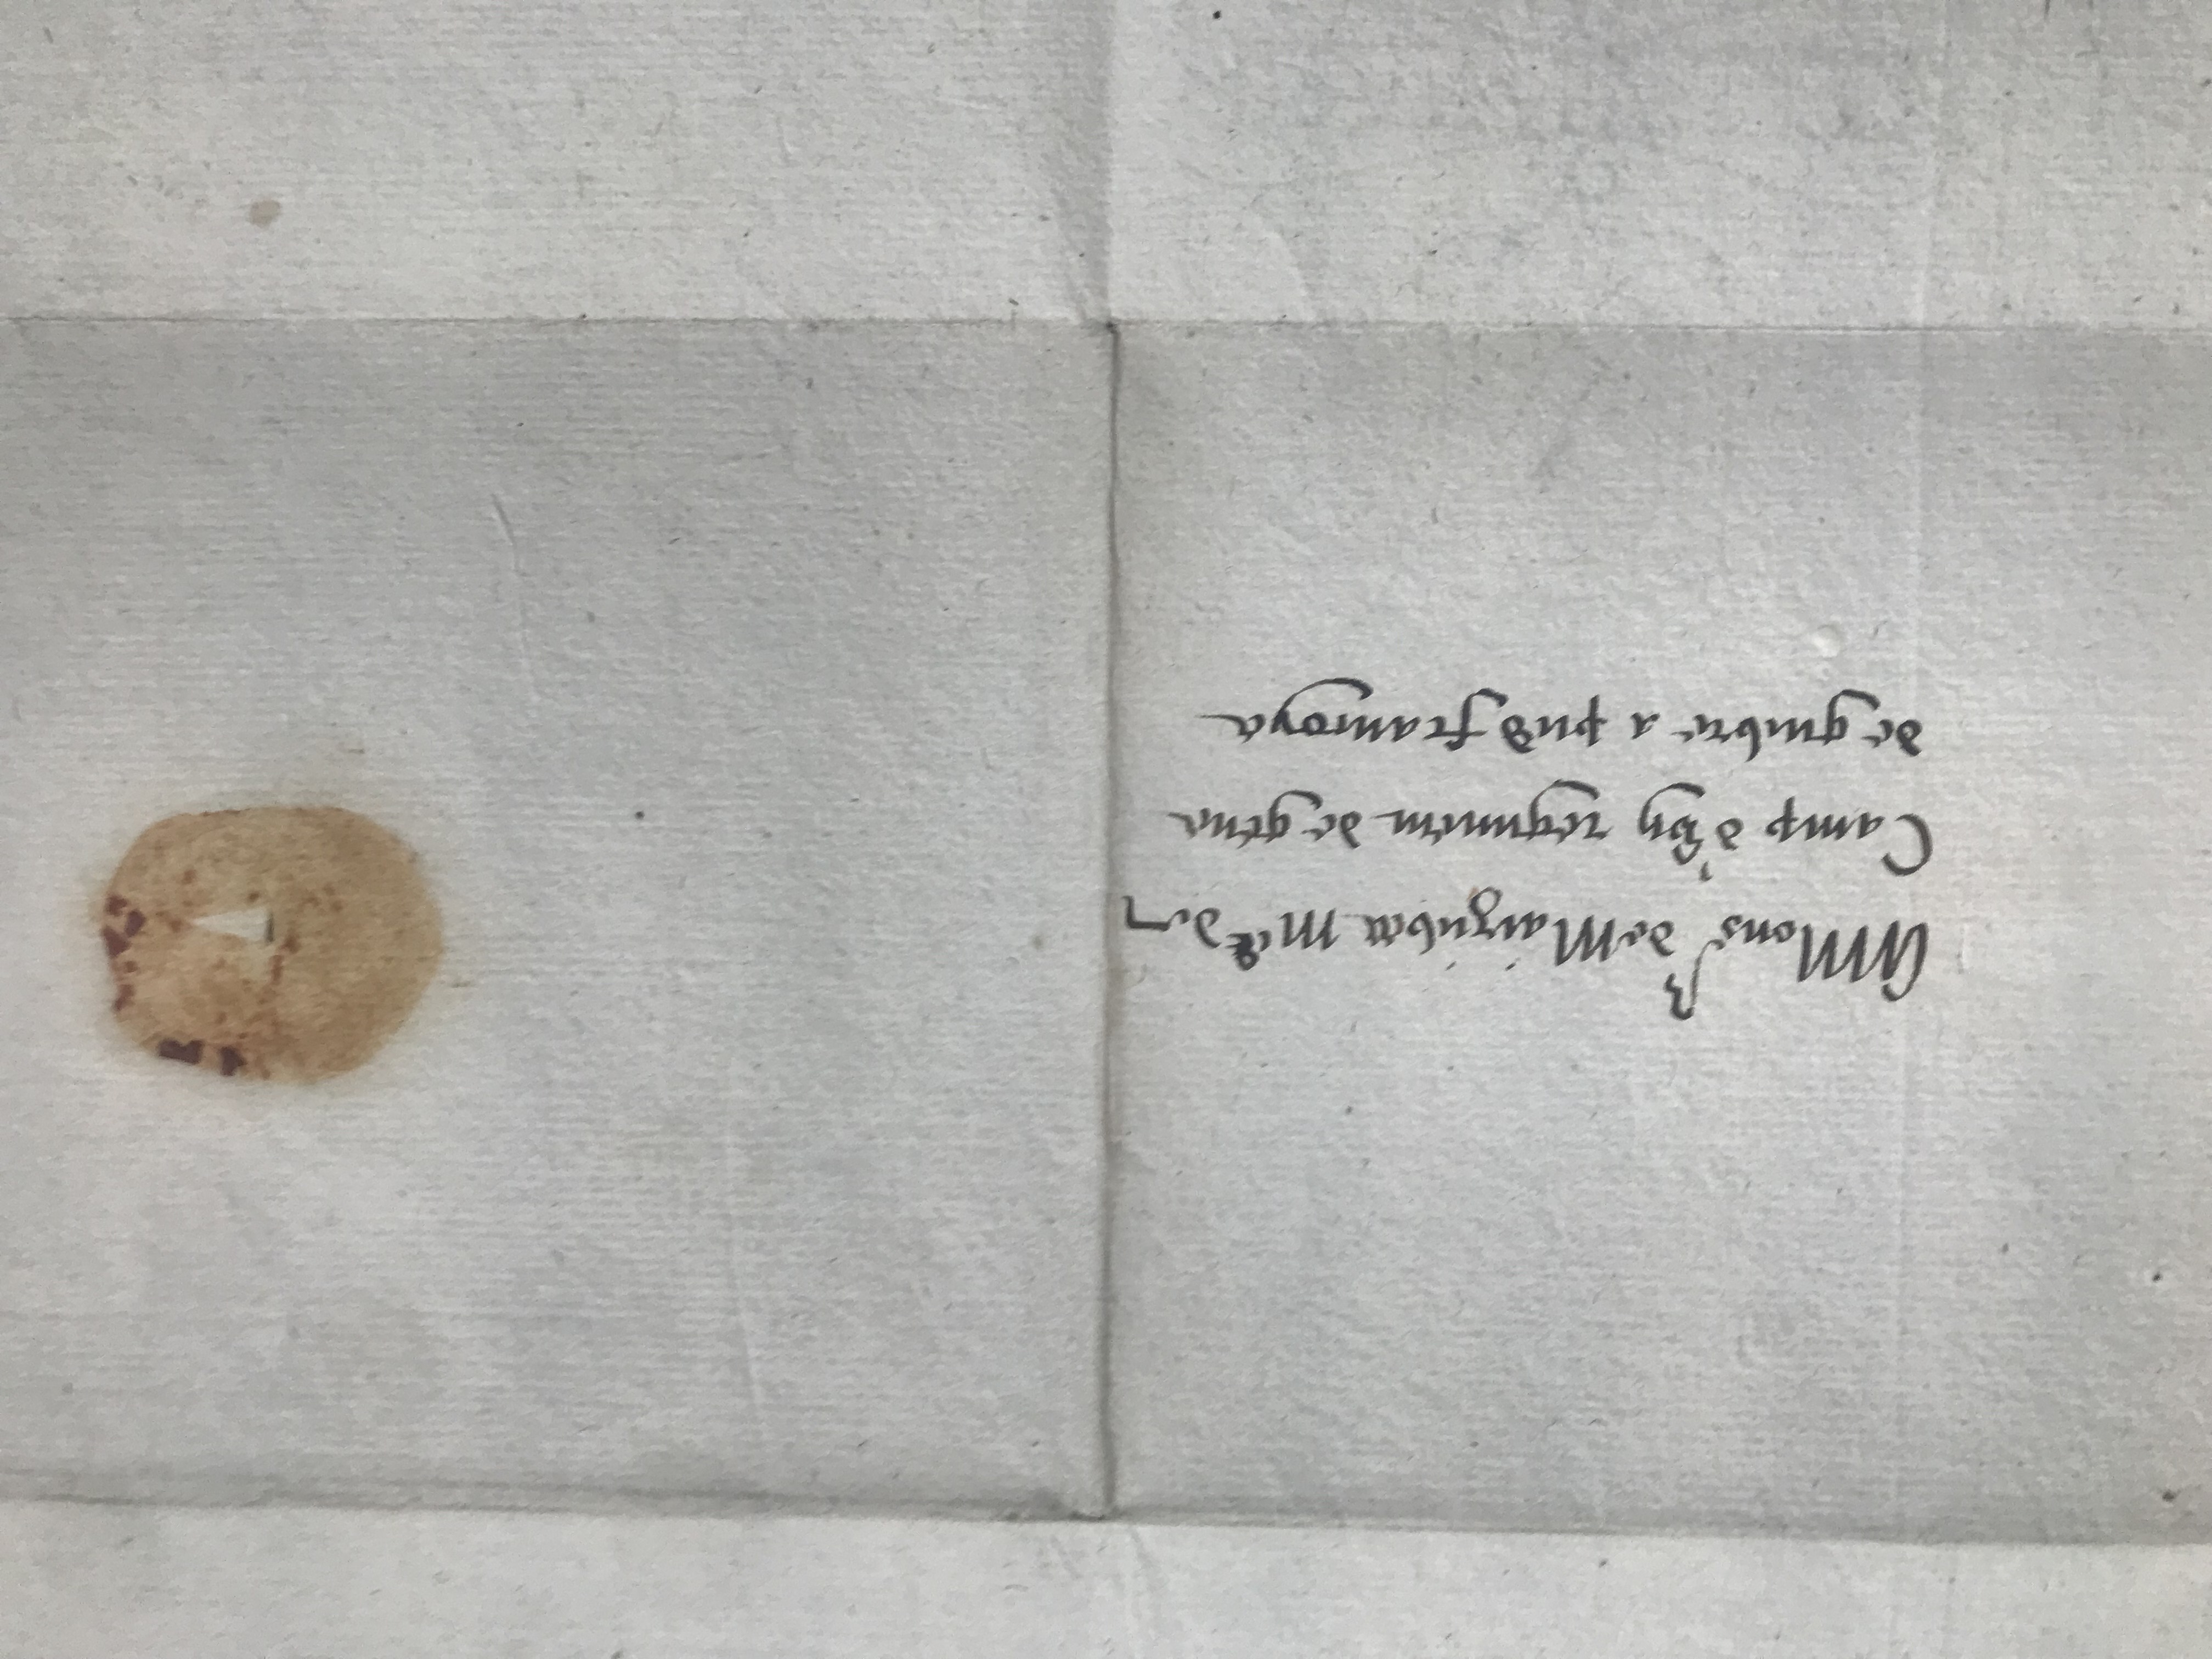 A Mons^r de Mazinbert M^e de
Camp d'ung regiment de gens
de guerre a pied francoys